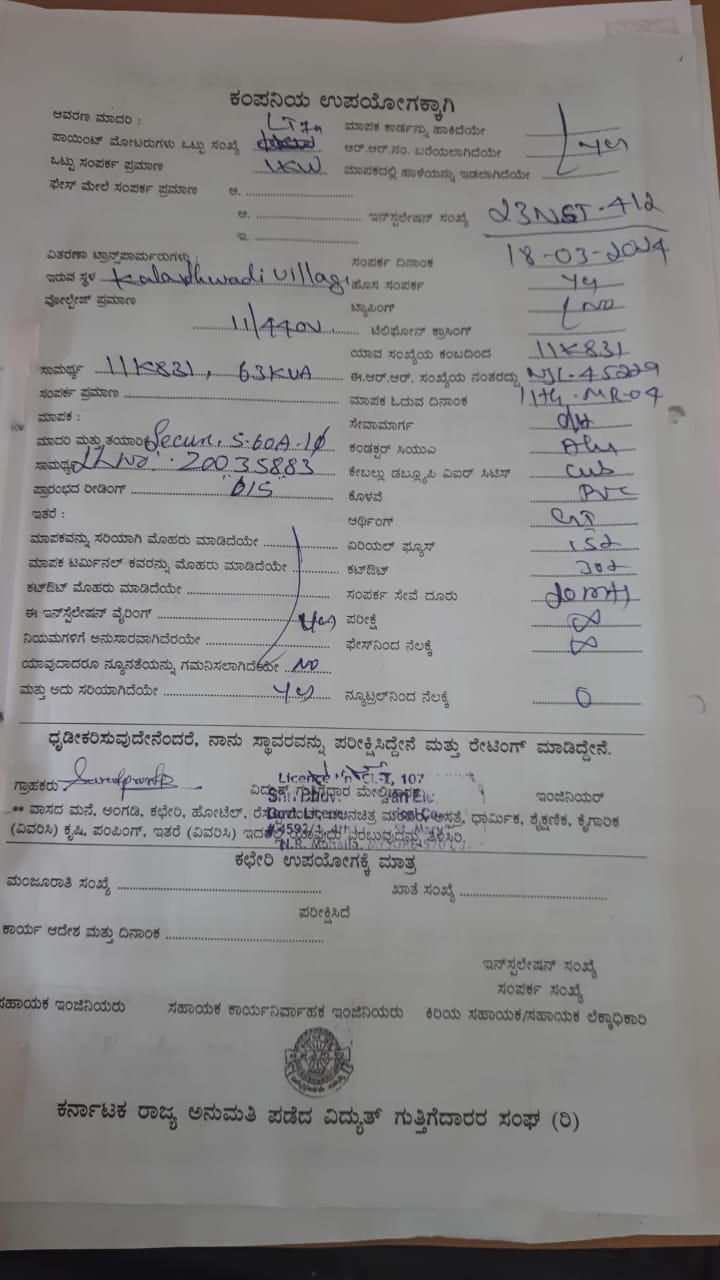 ಕಂಪನಿಯ ಉಪಯೋಗಕ್ಕಾಗಿ
ಆವರಣ ಮಾದರಿ : LT7a ಮಾಪಕ ಕಾರ್ಡನ್ನು ಹಾಕಿದೆಯೇ
ಪಾಯಿಂಟ್ ಮೋಟರುಗಳು ಒಟ್ಟು ಸಂಖ್ಯೆ ಆರ್.ಆರ್.ನಂ. ಬರೆಯಲಾಗಿದೆಯೇ Yes
ಒಟ್ಟು ಸಂಪರ್ಕ ಪ್ರಮಾಣ 1KW ಮಾಪಕದಲ್ಲಿ ಹಾಳೆಯನ್ನು ಇಡಲಾಗಿದೆಯೇ
ಫೇಸ್ ಮೇಲೆ ಸಂಪರ್ಕ ಪ್ರಮಾಣ ಅ.
ಆ. ಇನ್‌ಸ್ಟಲೇಷನ್ ಸಂಖ್ಯೆ 23NST-412
ಇ.
ವಿತರಣಾ ಟ್ರಾನ್ಸ್‌ಫಾರ್ಮರುಗಳು : ಸಂಪರ್ಕ ದಿನಾಂಕ 18-03-2024
ಇರುವ ಸ್ಥಳ village ಹೊಸ ಸಂಪರ್ಕ Yes
ವೋಲ್ಟೇಜ್ ಪ್ರಮಾಣ ಟ್ಯಾಪಿಂಗ್ NO
11/440V. ಟೆಲಿಫೋನ್ ಕ್ರಾಸಿಂಗ್
ಯಾವ ಸಂಖ್ಯೆಯ ಕಂಬದಿಂದ 11K831
ಸಾಮರ್ಥ್ಯ 11K831, 63KVA ಈ.ಆರ್.ಆರ್. ಸಂಖ್ಯೆಯ ನಂತರದ್ದು NJL-45229
ಸಂಪರ್ಕ ಪ್ರಮಾಣ ಮಾಪಕ ಓದುವ ದಿನಾಂಕ 11th-MR-04
ಮಾಪಕ : ಸೇವಾಮಾರ್ಗ OH
ಮಾದರಿ ಮತ್ತು ತಯಾರಿಕೆ Secure, 5-60A-1Ø ಕಂಡಕ್ಟರ್ ಸಿಯುಎ Alu
ಸಾಮರ್ಥ್ಯ 20035883 ಕೇಬಲ್ಲು ಡಬ್ಲ್ಯೂಪಿ ವಿಐಆರ್ ಸಿಟಿಸ್
ಪ್ರಾರಂಭದ ರೀಡಿಂಗ್ ಕೊಳವೆ PVC
ಇತರೆ : ಆರ್ಥಿಂಗ್
ಮಾಪಕವನ್ನು ಸರಿಯಾಗಿ ಮೊಹರು ಮಾಡಿದೆಯೇ ಏರಿಯಲ್ ಫ್ಯೂಸ್
ಮಾಪಕ ಟರ್ಮಿನಲ್ ಕವರನ್ನು ಮೊಹರು ಮಾಡಿದೆಯೇ ಕಟ್‌ಔಟ್
ಕಟ್‌ಔಟ್ ಮೊಹರು ಮಾಡಿದೆಯೇ ಸಂಪರ್ಕ ಸೇವೆ ದೂರು 20 mtr
ಈ ಇನ್‌ಸ್ಟಲೇಷನ್ ವೈರಿಂಗ್ Yes ಪರೀಕ್ಷೆ ∞
ನಿಯಮಗಳಿಗೆ ಅನುಸಾರವಾಗಿದೆರಯೇ ಫೇಸ್‌ನಿಂದ ನೆಲಕ್ಕೆ ∞
ಯಾವುದಾದರೂ ನ್ಯೂನತೆಯನ್ನು ಗಮನಿಸಲಾಗಿದೆಯೇ NO
ಮತ್ತು ಅದು ಸರಿಯಾಗಿದೆಯೇ Yes ನ್ಯೂಟ್ರಲ್‌ನಿಂದ ನೆಲಕ್ಕೆ 0
ಧೃಡೀಕರಿಸುವುದೇನೆಂದರೆ, ನಾನು ಸ್ಥಾವರವನ್ನು ಪರೀಕ್ಷಿಸಿದ್ದೇನೆ ಮತ್ತು ರೇಟಿಂಗ್ ಮಾಡಿದ್ದೇನೆ.
ಗ್ರಾಹಕರು ವಿದ್ಯುತ್ ಗುತ್ತಿಗೆದಾರ ಮೇಲ್ವಿಚಾರಕ ಇಂಜಿನಿಯರ್
** ವಾಸದ ಮನೆ, ಅಂಗಡಿ, ಕಛೇರಿ, ಹೋಟೆಲ್, ಆಸ್ಪತ್ರೆ, ಧಾರ್ಮಿಕ, ಶೈಕ್ಷಣಿಕ, ಕೈಗಾರಿಕ
(ವಿವರಿಸಿ) ಕೃಷಿ, ಪಂಪಿಂಗ್, ಇತರೆ (ವಿವರಿಸಿ) ತಿಳಿಸಿರಿ.
ಕಛೇರಿ ಉಪಯೋಗಕ್ಕೆ ಮಾತ್ರ
ಮಂಜೂರಾತಿ ಸಂಖ್ಯೆ ಖಾತೆ ಸಂಖ್ಯೆ
ಪರೀಕ್ಷಿಸಿದೆ
ಕಾರ್ಯ ಆದೇಶ ಮತ್ತು ದಿನಾಂಕ
ಇನ್‌ಸ್ಟಲೇಷನ್ ಸಂಖ್ಯೆ
ಸಂಪರ್ಕ ಸಂಖ್ಯೆ
ಸಹಾಯಕ ಇಂಜಿನಿಯರು ಸಹಾಯಕ ಕಾರ್ಯನಿರ್ವಾಹಕ ಇಂಜಿನಿಯರು ಕಿರಿಯ ಸಹಾಯಕ/ಸಹಾಯಕ ಲೆಕ್ಕಾಧಿಕಾರಿ
ಕರ್ನಾಟಕ ರಾಜ್ಯ ಅನುಮತಿ ಪಡೆದ ವಿದ್ಯುತ್ ಗುತ್ತಿಗೆದಾರರ ಸಂಘ (ರಿ)